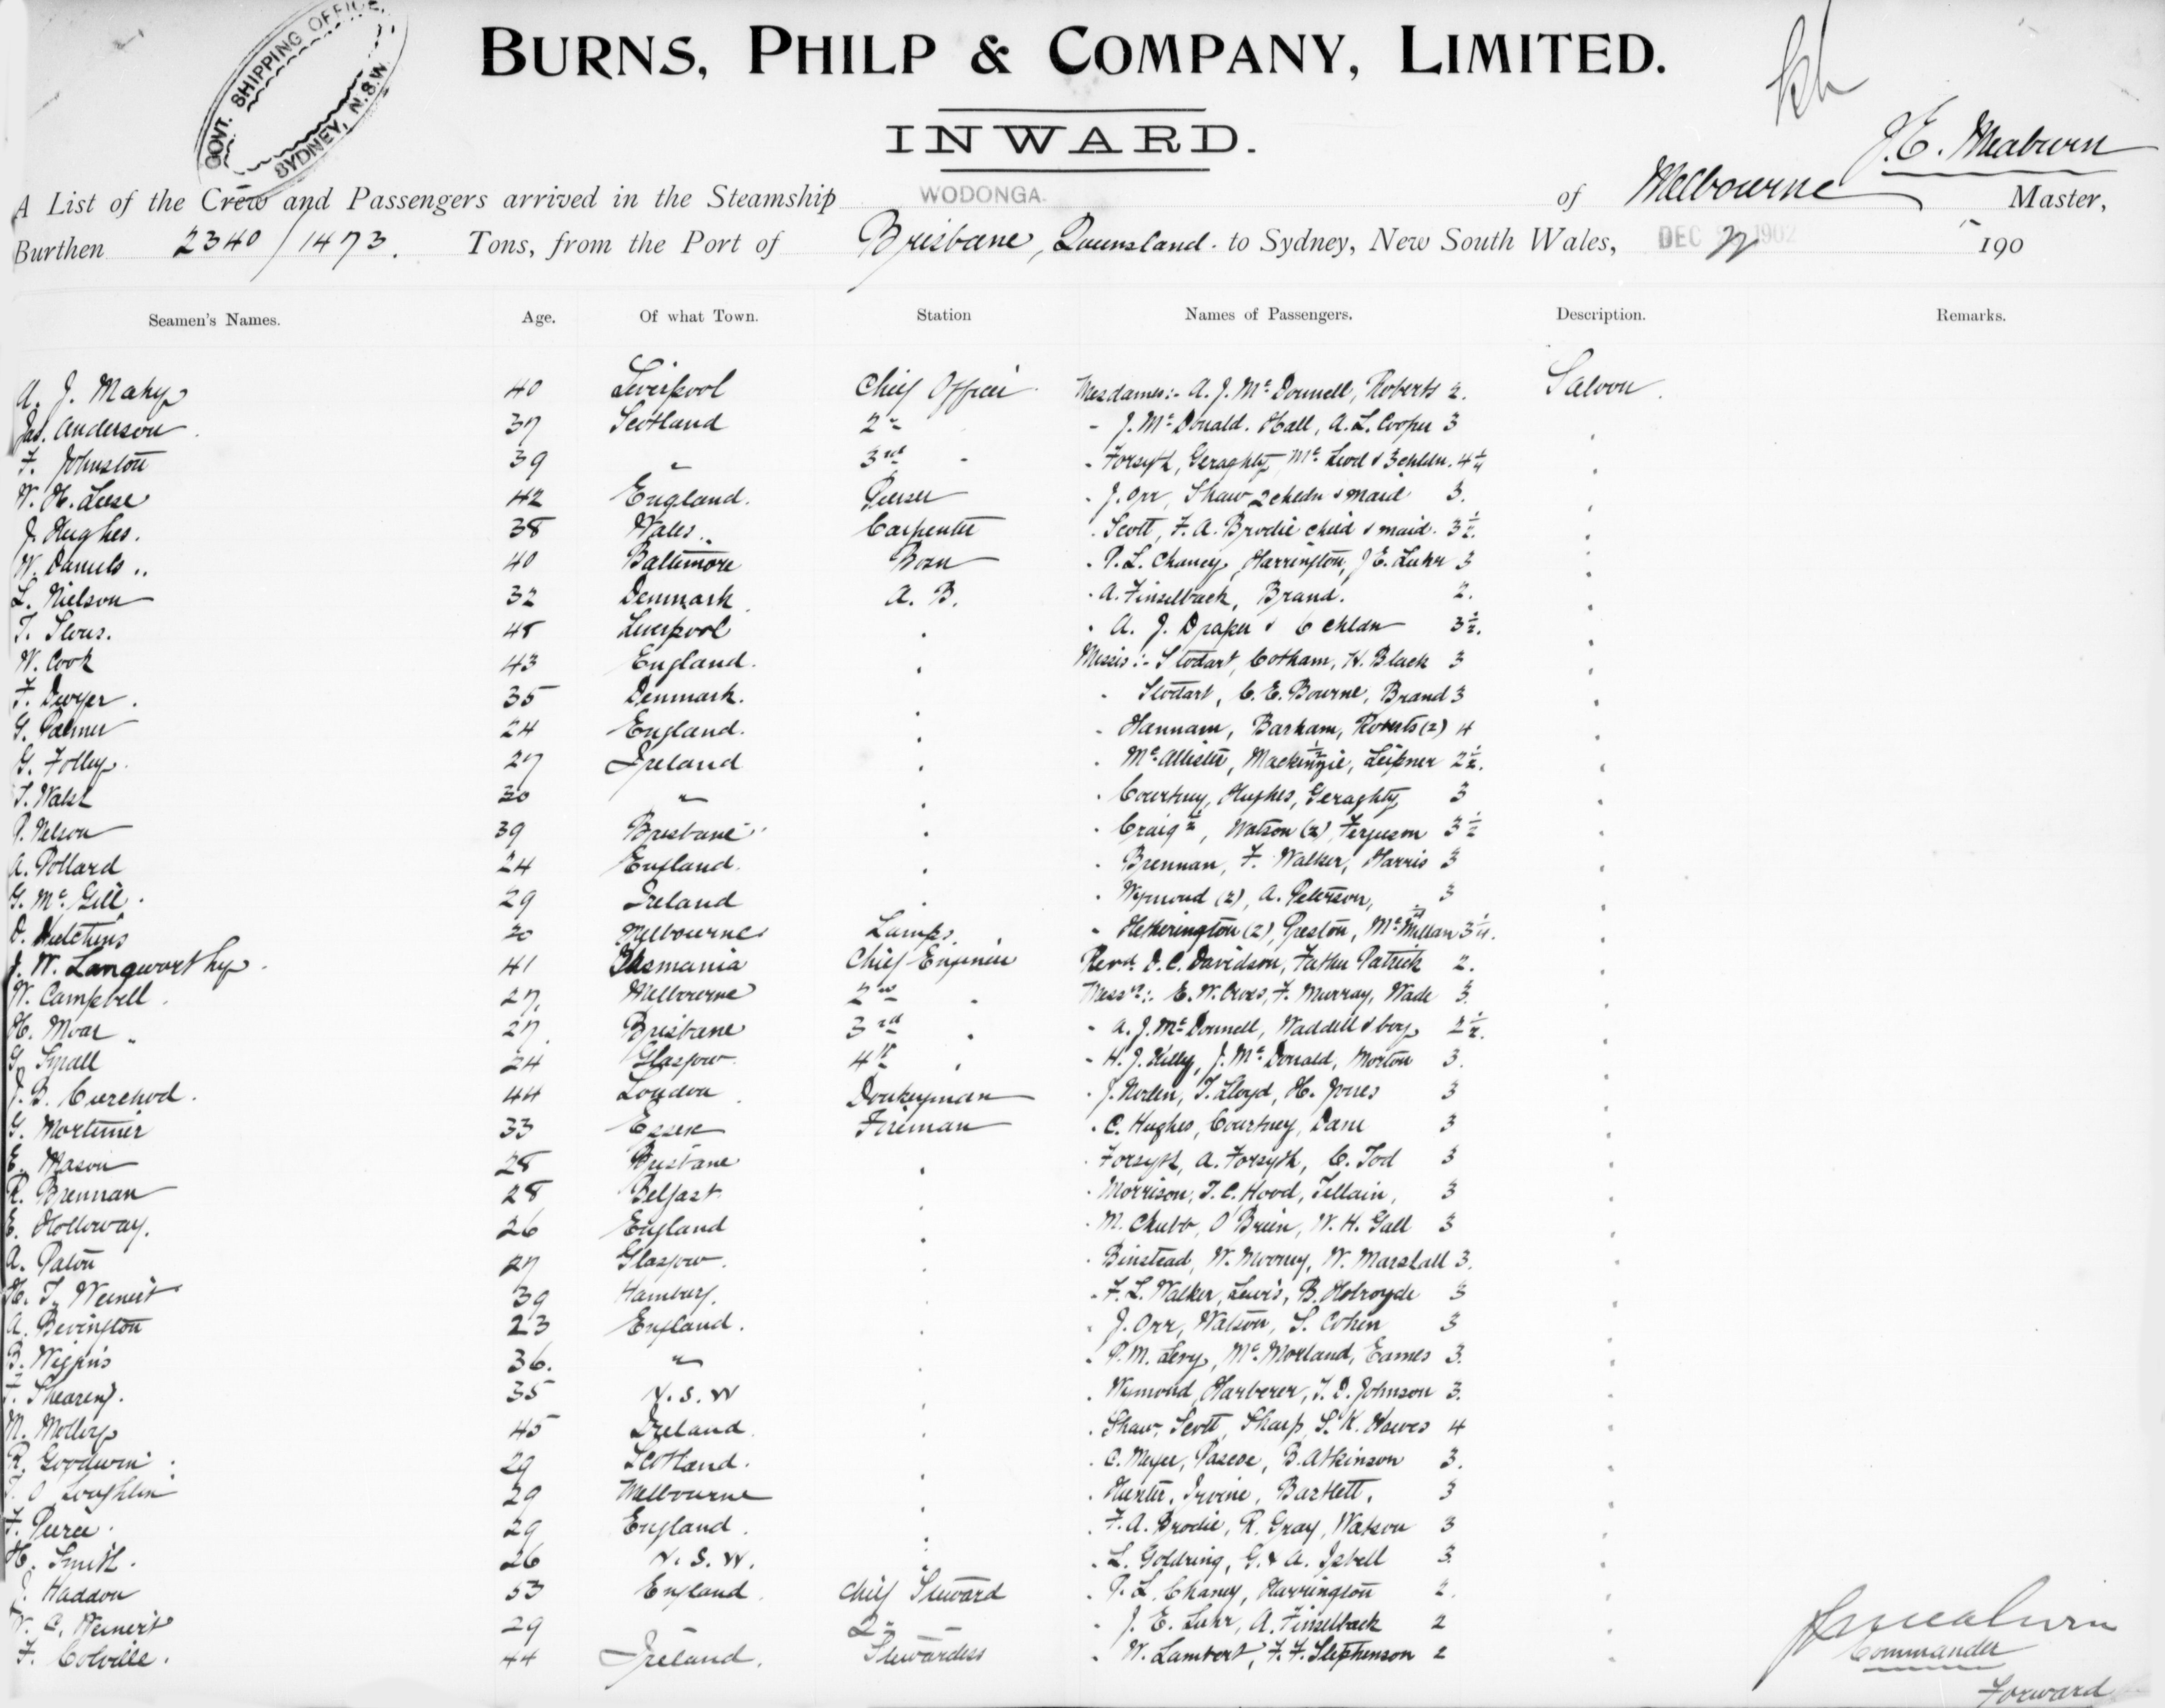 GOVT. SHIPPING OFFICE, SYDNEY, N.S.W.
BURNS, PHILP & COMPANY, LIMITED.
INWARD.
J. E. Meaburn
A List of the Crew and Passengers arrived in the Steamship WODONGA. of Melbourne Master,
Burthen 2340/1473. Tons, from the Port of Brisbane, Queensland. to Sydney, New South Wales, DEC 22 1902 190
Seamen's Names. Age. Of what Town. Station Names of Passengers. Description. Remarks.
A. J. Mahy 40 Liverpool Chief Officer Mesdames:- A. J. McDonnell, Roberts 2. Saloon.
Jas. Anderson 37 Scotland 2nd " - J. McDonald. Hall, A. L. Cooper 3 "
F. Johnston 39 " 3rd " - Forsyth, Geraghty, McLeod & 3 chldn. 4 1/4 "
W. H. Leese 42 England. Purser - J. Orr, Shaw 2 chldn & maid 3. "
J. Hughes. 38 Wales. Carpenter - Scott, F. A. Brodie child & maid. 3 1/2. "
W. Daniels 40 Baltimore Bosn - P. L. Chaney, Harrington, J. E. Luhr 3 "
L. Nielson 32 Denmark A. B. - A. Finselbach, Brand. 2. "
T. 48 Liverpool " - A. J. Draper & 6 chldn 3 1/2. "
W. Cook 43 England. " Misses:- Stodart, Cotham, H. Black 3 "
F. Dwyer. 35 Denmark. " - Stodart, C. E. Bourne, Brand 3 "
G. Palmer 24 England. " - Hannam, Barham, Roberts (2) 4 "
G. Folley. 27 Ireland " - McAllister, Mackinzie 1/2, Leipner 2 1/2. "
T. Walsh 30 " " - Courtney, Hughes, Geraghty 3 "
P. Nelson 39 Brisbane " - Craig 1/2, Watson (2), Ferguson 3 1/2 "
A. Pollard 24 England. " - Brennan, F. Walker, Harris 3 "
G. McGill. 29 Ireland " - Wymond (2), A. Peterson, 3 "
D. Hutchins 30 Melbourne Lamps. - Hetherington (2), Preston, McMillan 1/4 3 1/4. "
J. W. Langworthy. 41 Tasmania Chief Engineer Revd. D. C. Davidson, Father Patrick 2. "
W. Campbell. 27, Melbourne 2nd " Messrs:- E. W. Cross, F. Murray, Wade 3. "
H. Moar 27, Brisbane 3rd " - A. J. McDonnell, Waddell & boy 2 1/2. "
G. Small 24 Glasgow 4th " - H. J. Kelly, J. McDonald, Morton 3. "
J. B. Curchod. 44 London Donkeyman - J. Norlen, T. Lloyd, H. Jones 3 "
G. Mortimer 33 Essex Fireman - C. Hughes, Courtney, Dane 3 "
E. Mason 28 Brisbane " - Forsyth, A. Forsyth, C. Tod 3 "
R. Brennan 28 Belfast " - Morrison, T. C. Hood, Tellain, 3 "
E. Holloway. 26 England " - M. Chubb, O'Brien, W. H. Gall 3 "
A. Paton 27 Glasgow. " - Binstead, W. Mooney, W. Marshall 3. "
H. T. Weinert 39 Hamburg. " - F. L. Walker, Lewis, B. Holroyde 3 "
A. Bevington 23 England. " - J. Orr, Watson, S. Cohen 3 "
B. Wiggins 36. " " - P. M. Levy, McMorland, Eames 3. "
F. Shearing. 35 N. S. W " - Wymond, Harberer, T. D. Johnson 3. "
M. Molloy 45 Ireland " - Shaw, Scott, Sharp, S. K. Hawes 4 "
R. Goodwin. 29 Scotland. " - C. Meyer, Pascoe, B. Atkinson 3. "
T. O'Loughlin 29 Melbourne " - Hunter, Irvine, Bartlett, 3 "
F. Pierce. 29 England. " - F. A. Brodie, R. Gray, Watson 3 "
H. Smith. 26 N. S. W. " - L. Goldring, G. & A. Isbell 3. "
Haddon 53 England Chief Steward - P. L. Chaney, Harrington 2. "
W. C. Weinert 29 " 2nd " - J. E. Luhr, A. Finselback 2 "
F. Colville. 44 Ireland. Stewardess - W. Lambert, F. F. Stephenson 2 "
J E Meaburn
Commander
Forward